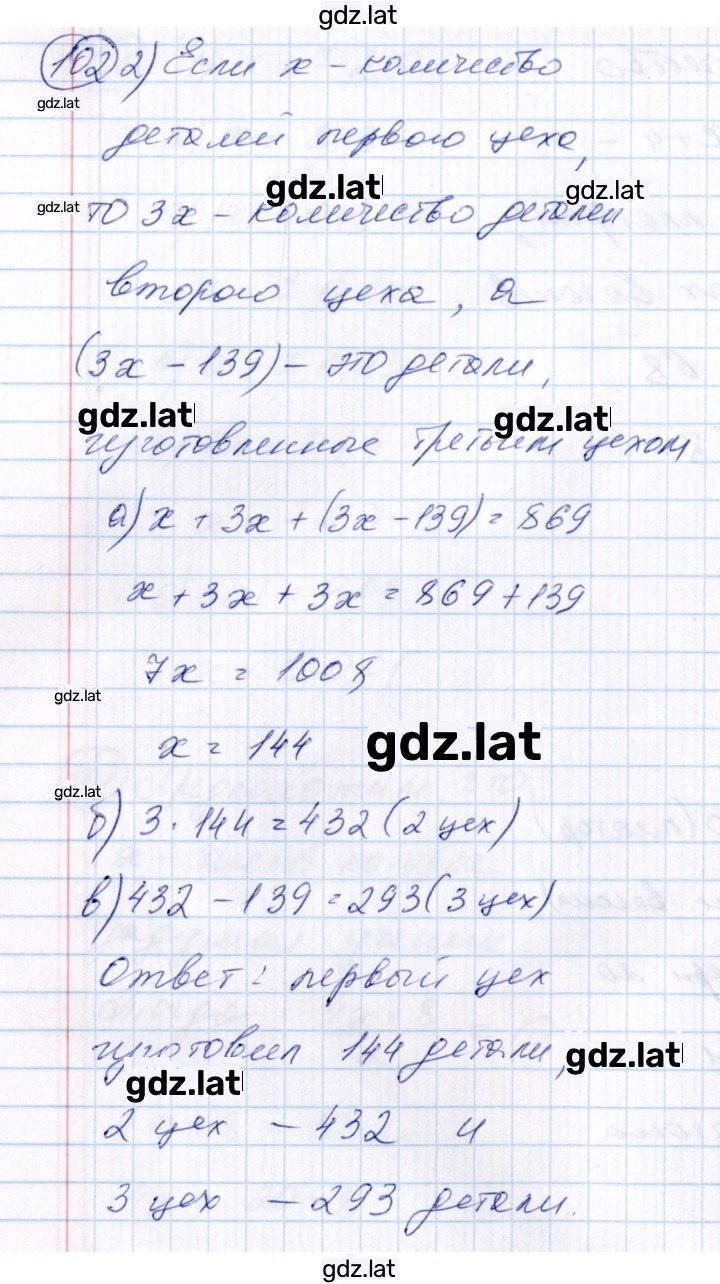 gdz.lat
102 2) Если x - количество
gdz.lat
деталей первого цеха,
gdz.lat gdz.lat
gdz.lat то 3x - количество деталей
второго цеха, а
(3x - 139) - это детали,
gdz.lat gdz.lat
изготовленные третьим цехом
а) x + 3x + (3x - 139) = 869
x + 3x + 3x = 869 + 139
7x = 1008
gdz.lat
x = 144 gdz.lat
gdz.lat
б) 3 · 144 = 432 (2 цех)
в) 432 - 139 = 293 (3 цех)
Ответ: первый цех
изготовил 144 детали, gdz.lat
gdz.lat
2 цех - 432 и
3 цех - 293 детали.
gdz.lat